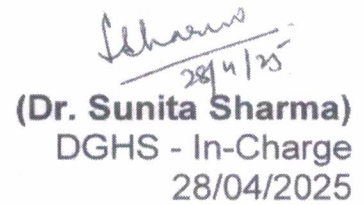 Sharma
28/4/25
(Dr. Sunita Sharma)
DGHS - In-Charge
28/04/2025